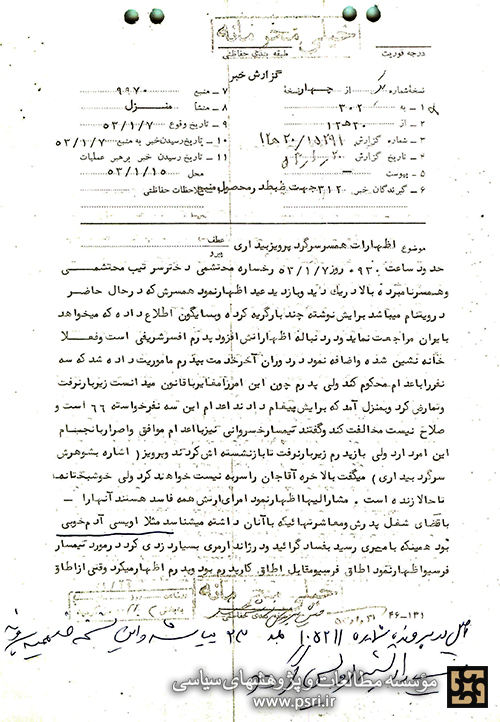 خیلی محرمانه
درجه فوریت
طبقه بندی حفاظتی
گزارش خبر
نسخه شماره از چهار نسخه
۱ - به ۳۰۲
۲ - از ۲۰ ه ۱۲
۳ - شماره گزارش ۱۵۲۹۱ / ۲۰ ه ۱۲
۴ - تاریخ گزارش
۵ - پیوست
۶ - گیرندگان خبر ۳۱۲ جهت ضبط در محصول منبع
۷ - منبع ۹۹۷۰
۸ - منشأ منزل
۹ - تاریخ وقوع ۵۳/۱/۷
۱۰ - تاریخ رسیدن خبر به منبع ۵۳/۱/۷
۱۱ - تاریخ رسیدن خبر برهبر عملیات
محل ۵۳/۱/۱۵
ملاحظات حفاظتی
موضوع اظهارات همسر سرگرد پرویز بیداری
عطف
پیرو
حدود ساعت ۰۹۳۰ روز ۵۳/۱/۷ رخساره محتشمی دختر سرتیپ محتشمی
و همسر نامبرده بالا در یک دید و بازدید عید اظهار نمود همسرش که در حال حاضر
در ویتنام میباشد برایش نوشته چند بار گریه کرده و بسایگون اطلاع داده که میخواهد
بایران مراجعت نماید و در دنباله اظهاراتش افزود پدرم افسر شریفی است و فعلا
خانه نشین شده و اضافه نمود در دوران آخر خدمت بپدرم ماموریت داده شد که سه
نفر را باعدام محکوم کند ولی پدرم چون این امر را مغایر با قانون میدانست زیر بار نرفت
و تمارض کرد و بمنزل آمد که برایش پیغام دادند اعدام این سه نفر خواسته ۶۶ است و
صلاح نیست مخالفت کند و گفتند تیمسار خسروانی نیز با اعدام موافق و اصرار بانجام
این امر دارد ولی بازپدرم زیر بار نرفت تا بازنشسته اش کردند و پرویز ( اشاره بشوهرش
سرگرد بیداری ) میگفت بالاخره آقاجان را سر به نیست خواهند کرد ولی خوشبختانه
تا حالا زنده است . مشارالیها اظهار نمود امرای ارتش همه فاسد هستند آنها را -
باقتضای شغل پدرش و معاشرتهائیکه با آنان داشته میشناسد مثلا اویسی آدم خوبی
بود همینکه بامیری رسید بفساد گرائید و در ژاندارمری بسیار دزدی کرد در مورد تیمسار
فرسیو اظهار نمود اطاق فرسیو مقابل اطاق کار پدرم بود و پدرم اظهار میکرد وقتی از اطاق
خیلی محرمانه
۴۶-۱۳۱
مؤسسه مطالعات و پژوهشهای سیاسی
www.psri.ir